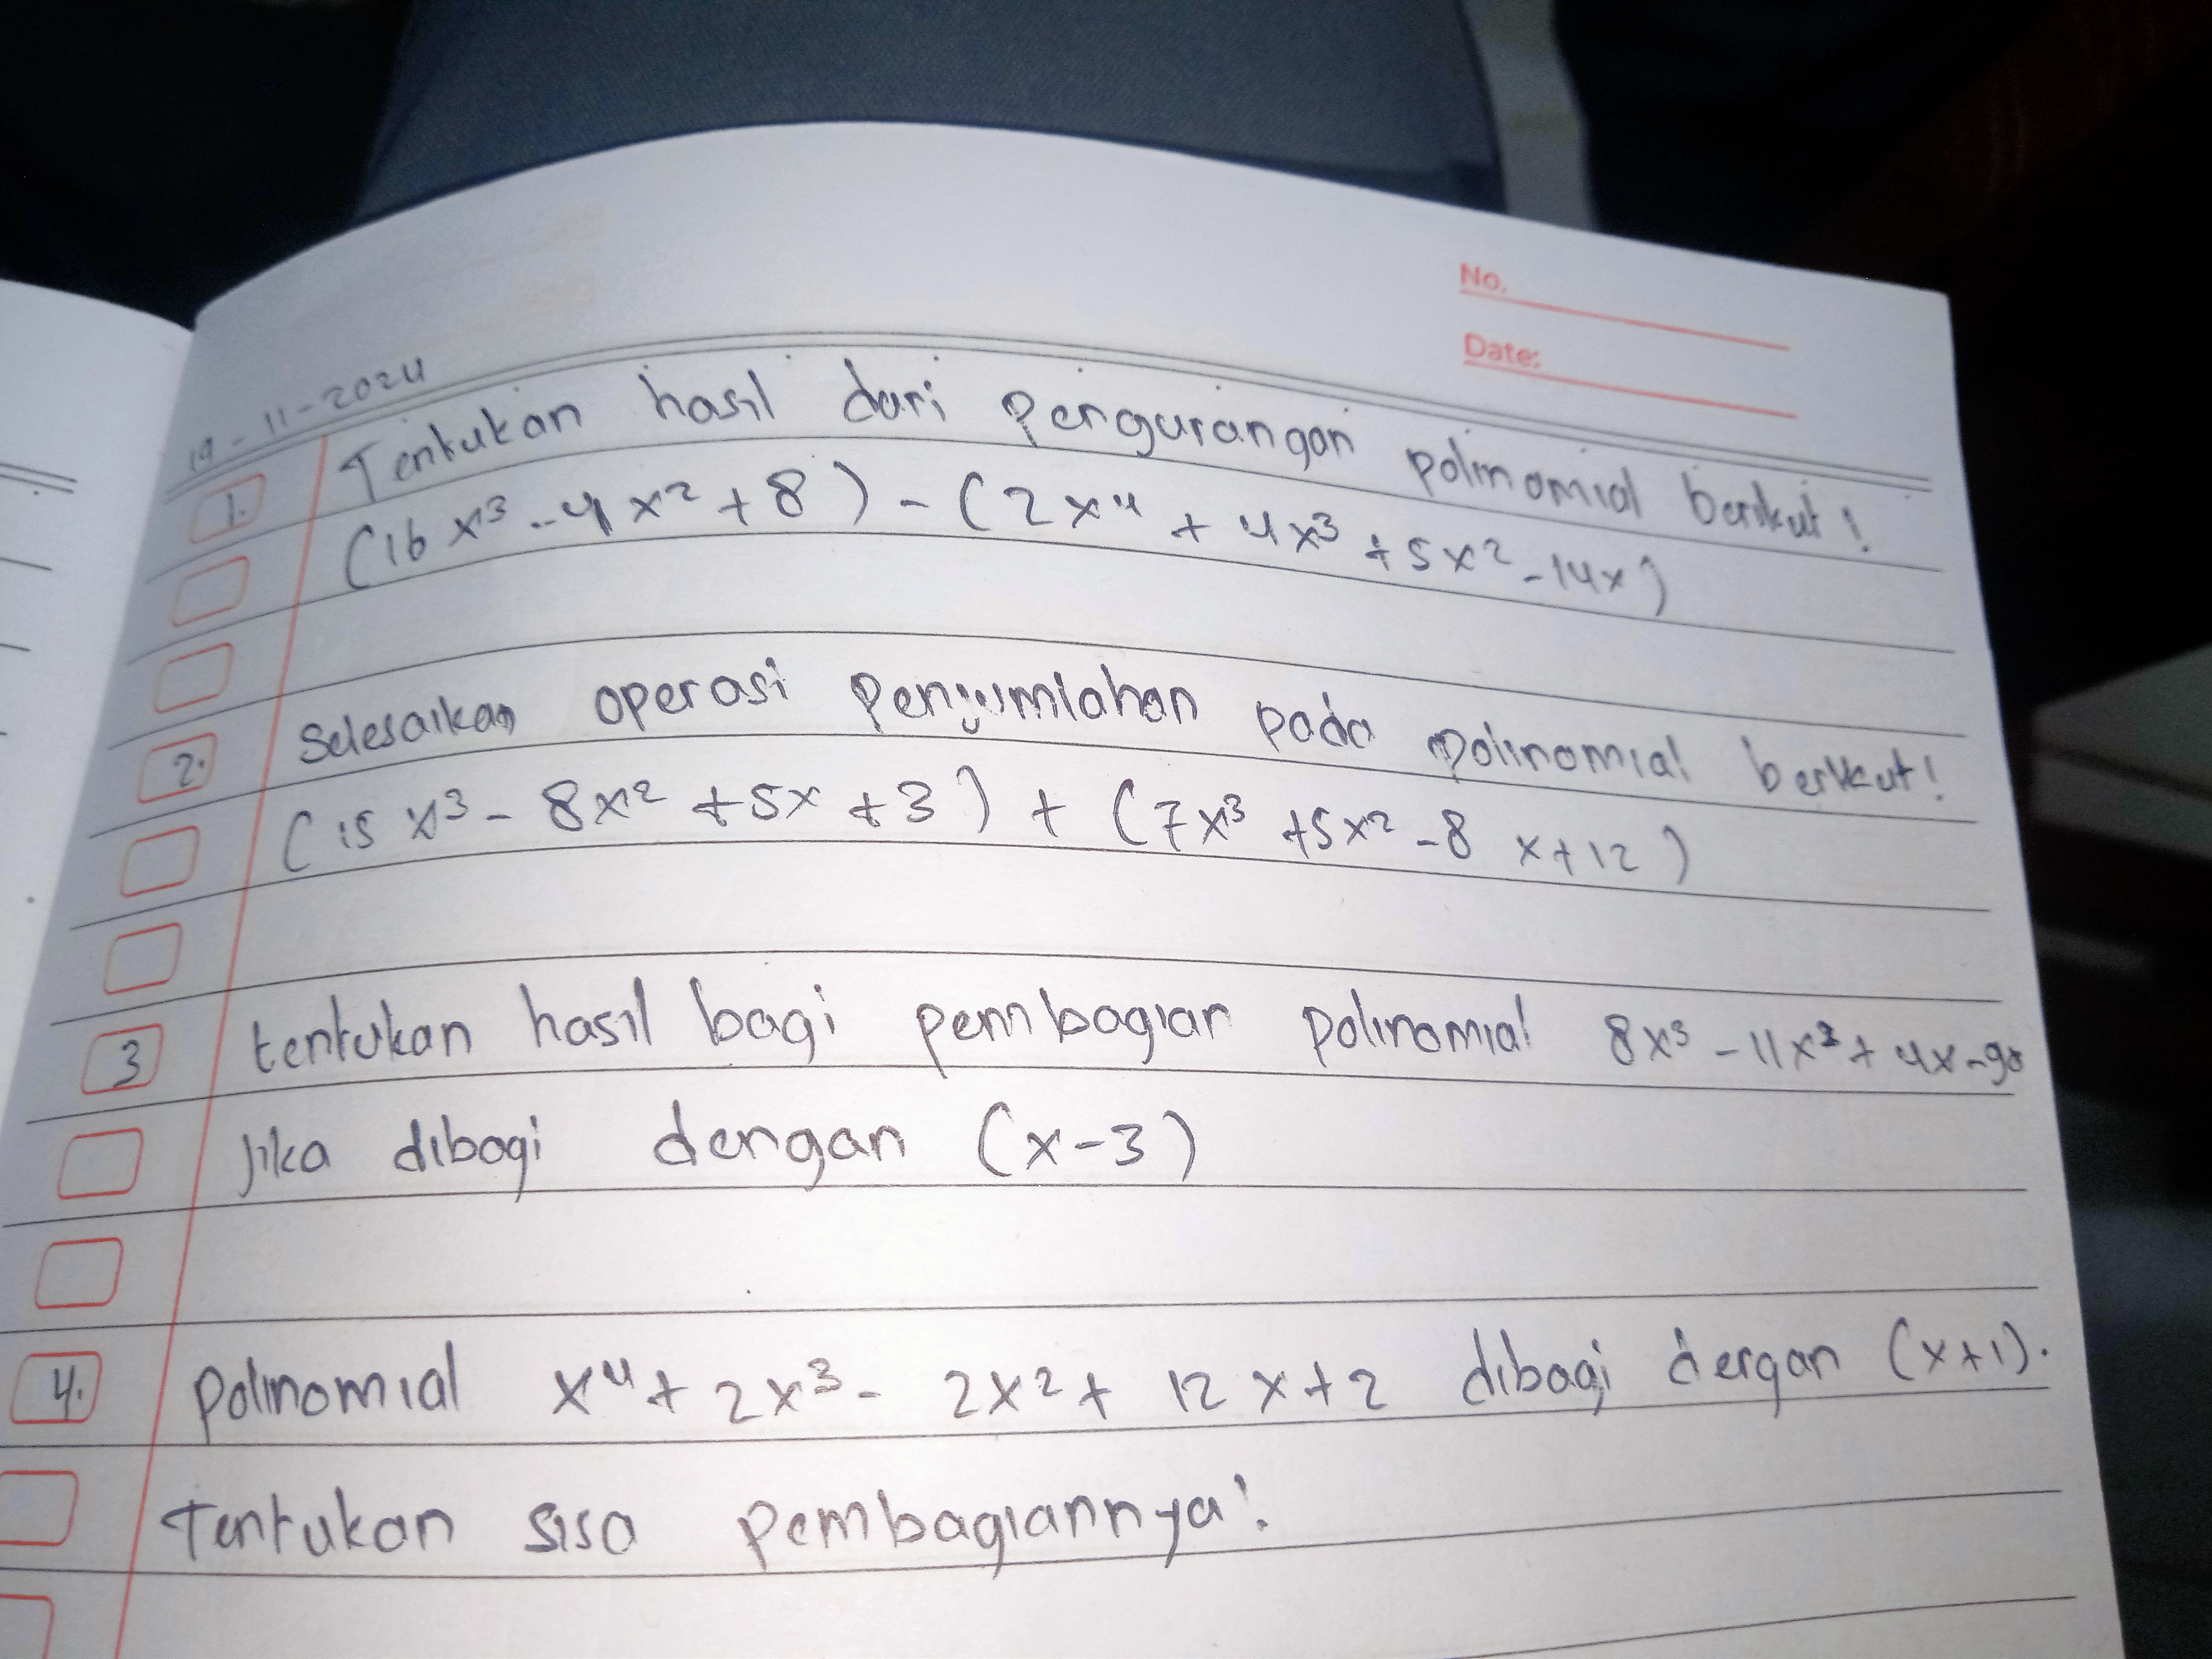 No.
Date:
19-11-2024
1. Tentukan hasil dari pengurangan polinomial berikut!
(16x³ - 4x² + 8) - (2x⁴ + 4x³ + 5x² - 14x)
2. Selesaikan operasi penjumlahan pada polinomial berikut!
(15x³ - 8x² + 5x + 3) + (7x³ + 5x² - 8x + 12)
3 tentukan hasil bagi pembagian polinomial 8x³ - 11x² + 4x - 90
Jika dibagi dengan (x-3)
4. polinomial x⁴ + 2x³ - 2x² + 12x + 2 dibagi dengan (x+1).
Tentukan sisa pembagiannya!